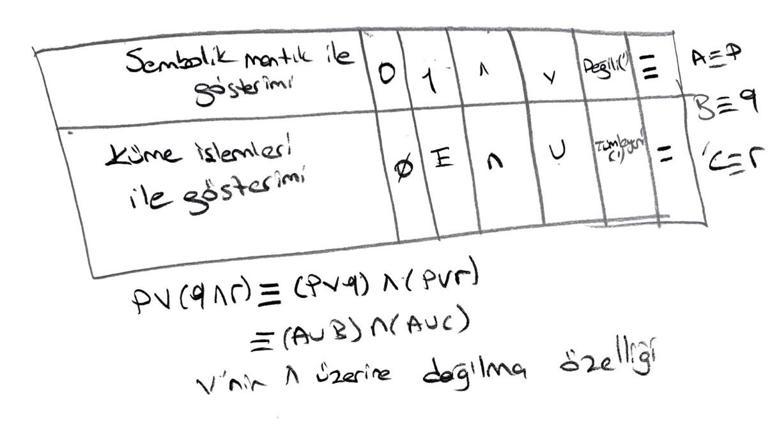 Sembolik mantık ile gösterimi 0 1 ∧ ∨ Değili(') ≡ A≡P
B≡q
Küme işlemleri ile gösterimi ∅ E ∩ ∪ Tümleyeni (') = C≡r
PV(q∧r) ≡ (PVq) ∧ (PVr)
≡ (A∪B) ∩ (A∪C)
V'nin ∧ üzerine değılma özelliği